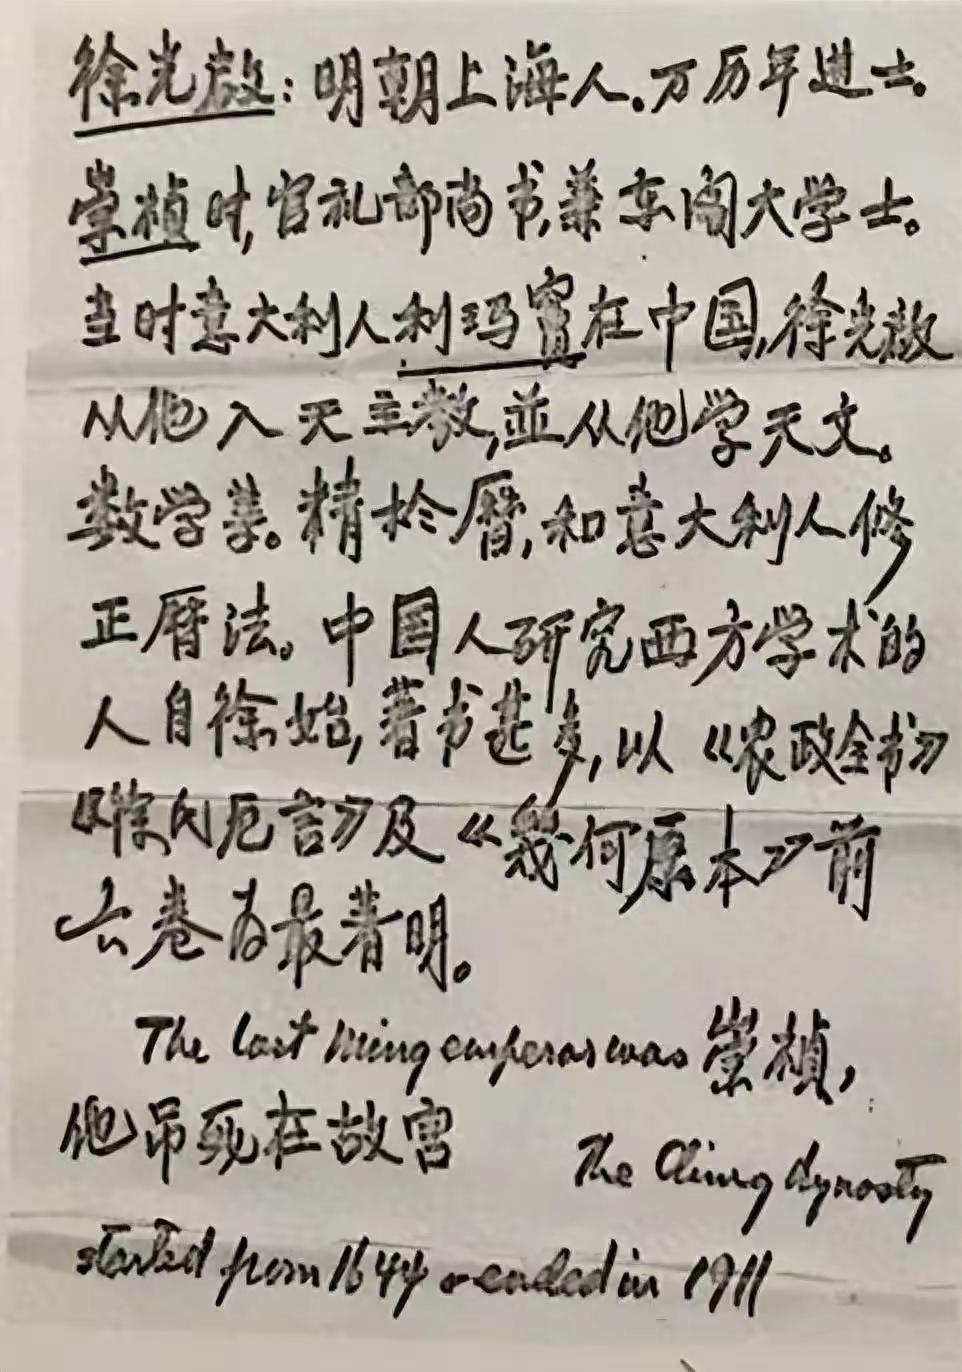 徐光啟：明朝上海人。万历年进士。
崇禎时，官礼部尚书，兼东阁大学士。
当时意大利人利玛窦在中国，徐光啟
从他入天主教，並从他学天文。
数学等。精於厝，和意大利人修
正厝法。中国人研究西方学术的
人自徐始，著书甚多，以《农政全书》
《徐氏厄言》及《幾何原本》前
六卷为最著明。
The last Ming emperor was 崇禎，
他吊死在故宫
The Ching dynasty
started from 1644 & ended in 1911